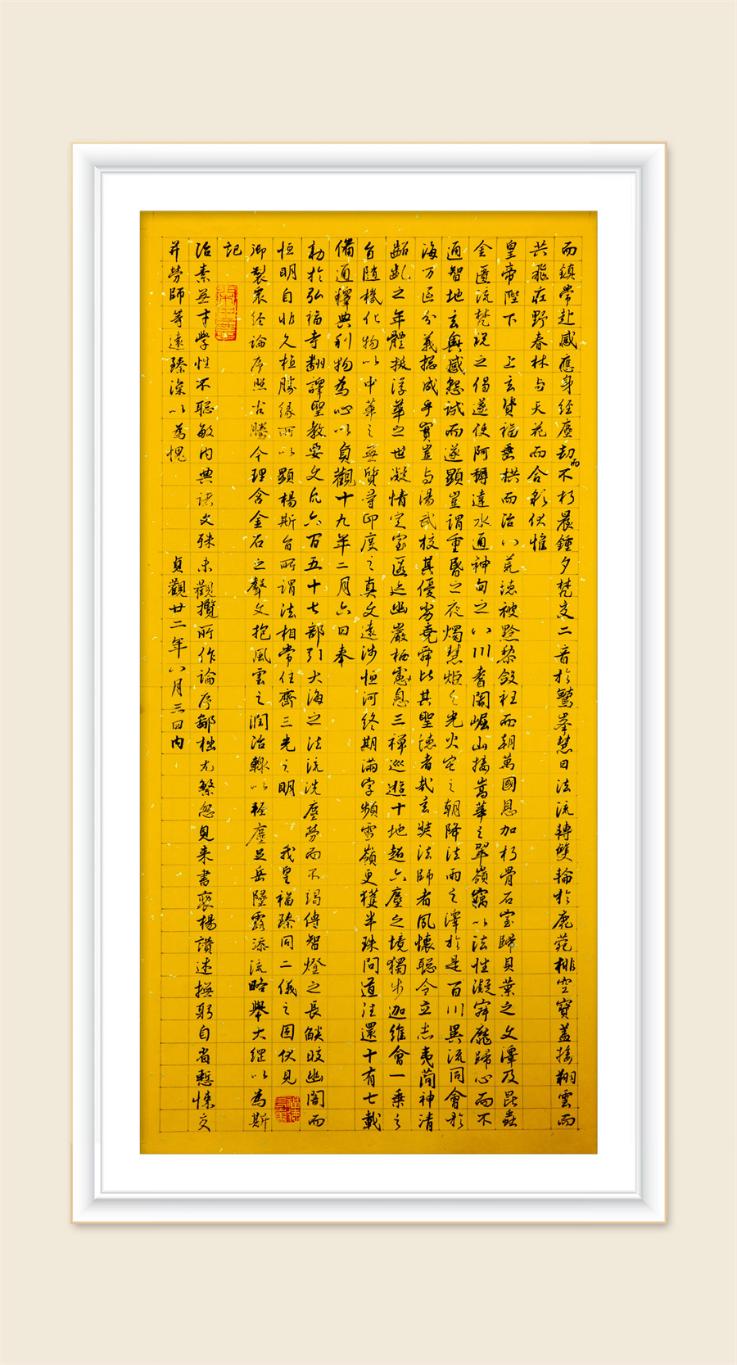 而鎮常赴感應身經塵劫而不朽晨鍾夕梵交二音於鷲峯慧日法流轉雙輪於鹿菀排空寶蓋接翔雲而
共飛莊野春林与天花而合彩伏惟
皇帝陛下 上玄資福垂拱而治八荒德被黔黎斂衽而朝萬國恩加朽骨石室歸貝葉之文澤及昆蟲
金匱流梵說之偈遂使阿耨達水通神甸之八川耆闍崛山接嵩華之翠嶺竊以法性凝寂靡歸心而不
通智地玄奧感懇誠而遂顯豈謂重昏之夜燭慧炬之光火宅之朝降法雨之澤於是百川異流同會於
海万區分義揔成乎實豈与湯武校其優劣堯舜比其聖德者哉玄奘法師者夙懷聰令立志夷簡神清
齠齔之年體拔浮華之世凝情定室匿迹幽巖栖息三禪巡遊十地超六塵之境獨步迦維會一乘之
旨隨機化物以中華之無質尋印度之真文遠涉恒河終期滿字頻雪嶺更獲半珠問道往還十有七載
備通釋典利物為心以貞觀十九年二月六日奉
勅於弘福寺翻譯聖教要文凡六百五十七部引大海之法流洗塵勞而不竭傳智燈之長焰皎幽闇而
恒明自非久植勝緣何以顯揚斯旨所謂法相常住齊三光之明 我皇福臻同二儀之固伏見
御製衆經論序照古騰今理含金石之聲文抱風雲之潤治輒以輕塵足岳墜露添流略舉大綱以為斯
記
治素無才學性不聰敏內典諸文殊未觀攬所作論序鄙拙尤繁忽見來書褒揚讚述撫躬自省慙悚交
并勞師等遠臻深以為愧 貞觀廿二年八月三日內